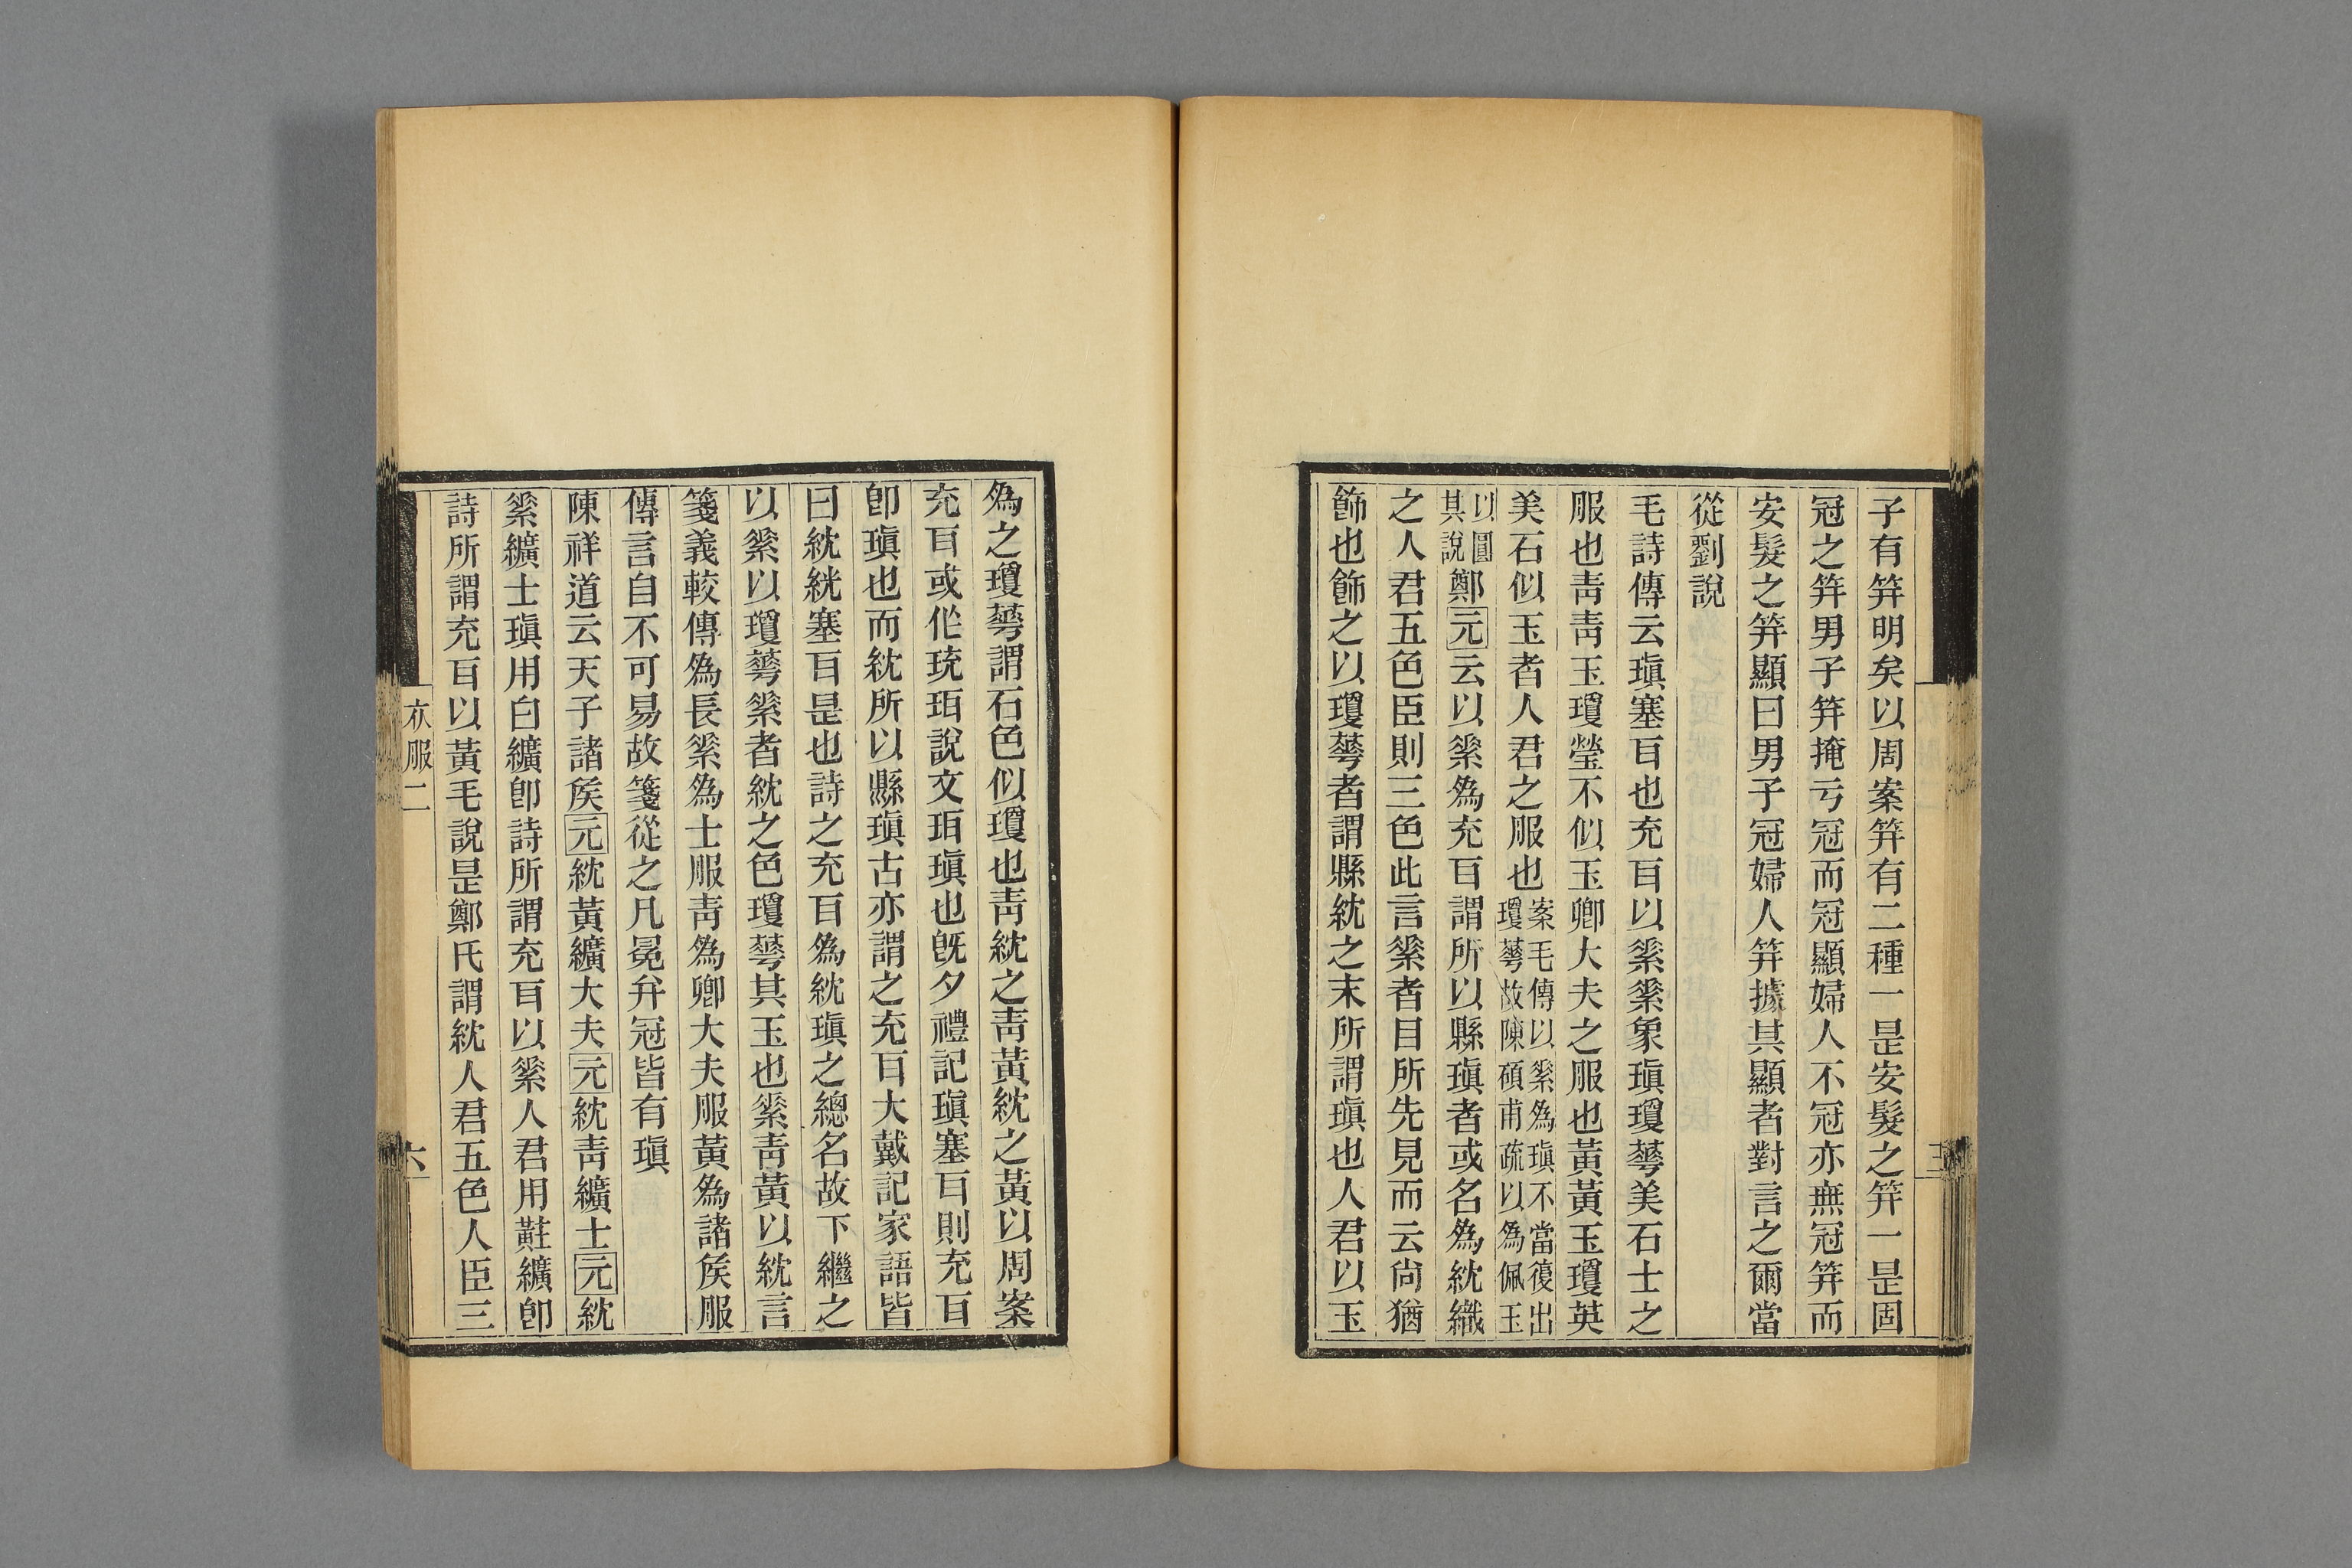 子有笄明矣以周案笄有二種一是安髮之笄一是固
冠之笄男子笄掩亏冠而冠顯婦人不冠亦無冠笄而
安髮之笄顯曰男子冠婦人笄據其顯者對言之爾當
從劉說
毛詩傳云瑱塞耳也充耳以素素象瑱瓊華美石士之
服也靑靑玉瓊瑩石似玉卿大夫之服也黃黃玉瓊英
美石似玉者人君之服也案毛傳以素爲瑱不當復出
瓊華故陳碩甫疏以爲佩玉
以圓
其說鄭元云以素爲充耳謂所以縣瑱者或名爲紞織
之人君五色臣則三色此言素者目所先見而云尙猶
飾也飾之以瓊華者謂縣紞之末所謂瑱也人君以玉
爲之瓊華謂石色似瓊也靑紞之靑黃紞之黃以周案
充耳或作珫珥說文珥瑱也旣夕禮記瑱塞耳則充耳
卽瑱也而紞所以縣瑱古亦謂之充耳大戴記家語皆
曰紞絖塞耳是也詩之充耳爲紞瑱之總名故下繼之
以素以瓊華素者紞之色瓊華其玉也素靑黃以紞言
箋義較傳爲長素爲士服靑爲卿大夫服黃爲諸矦服
傳言自不可易故箋從之凡冕弁冠皆有瑱
陳祥道云天子諸矦元紞黃纊大夫元紞靑纊士元紞
素纊士瑱用白纊卽詩所謂充耳以素人君用黈纊卽
詩所謂充耳以黃毛說是鄭氏謂紞人君五色人臣三
衣服二
六